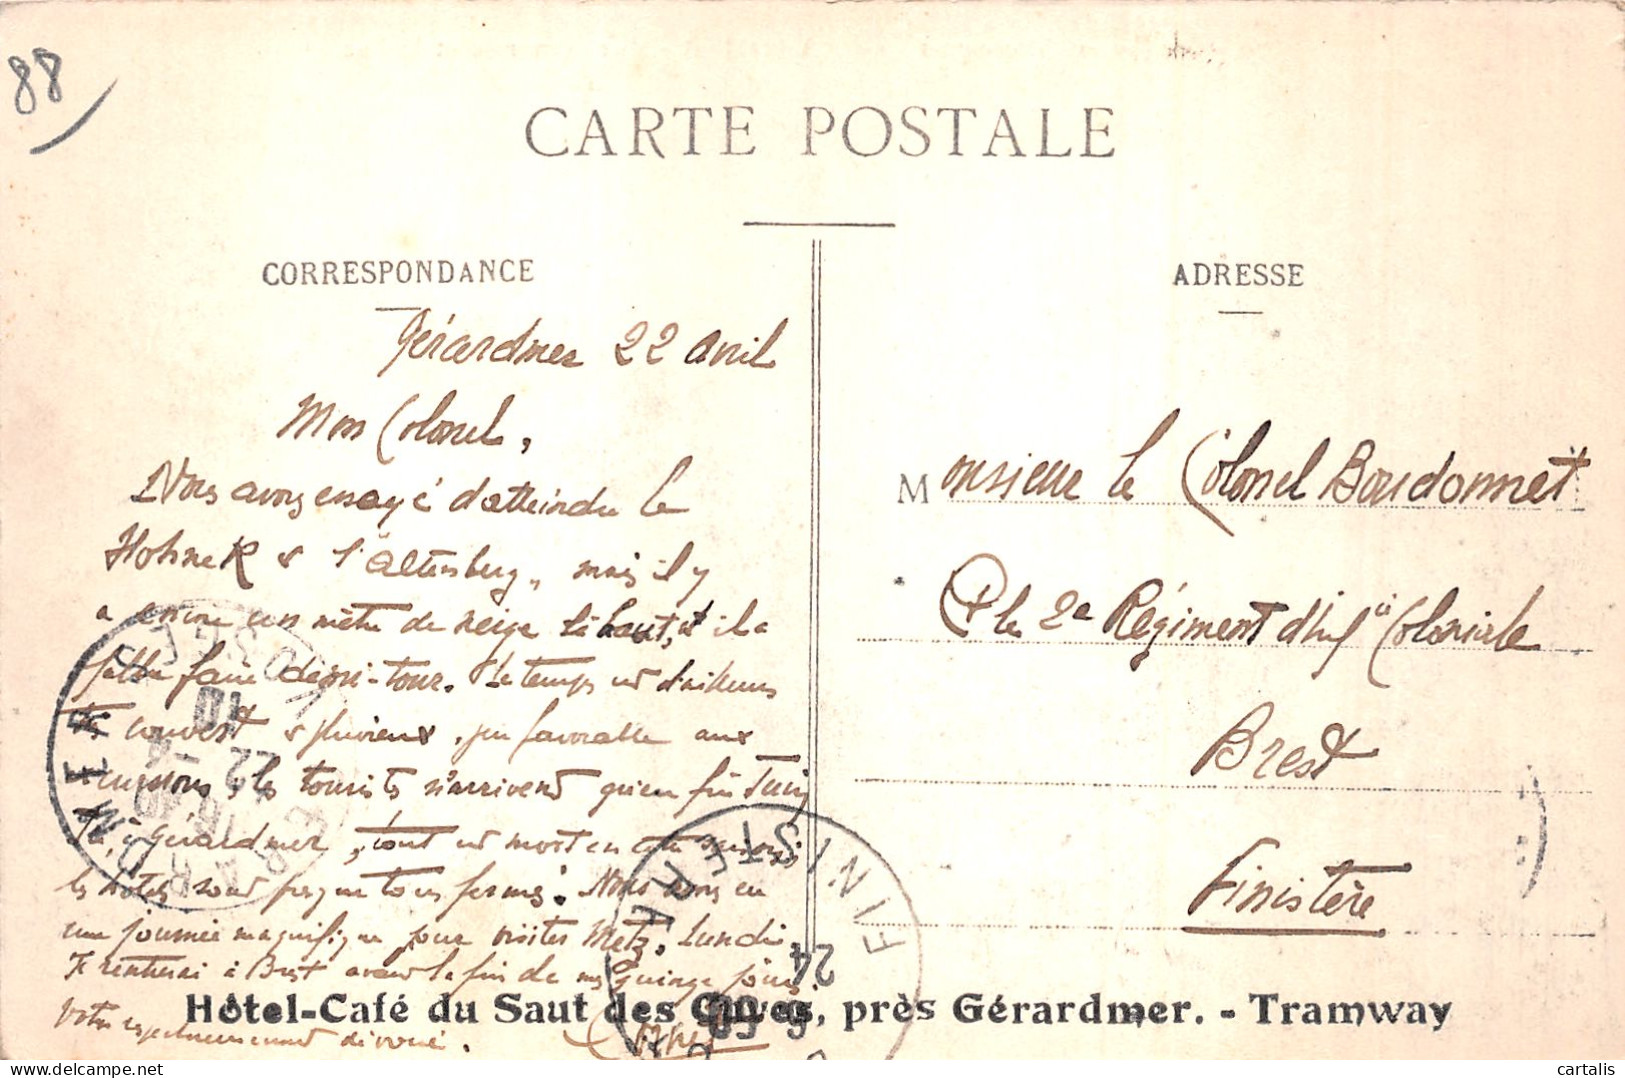 88
CARTE POSTALE
CORRESPONDANCE
Gérardmer 22 avril
Mon Colonel,
Nous avons essayé d'atteindre le
Hohneck & l'Altenberg, mais il y
a encore un mètre de neige là haut, et il a
fallu faire demi-tour. Le temps est d'ailleurs
couvert & pluvieux, peu favorable aux
excursions, les touristes n'arrivent qu'en fin Juin
à Gérardmer, tout est mort en cette saison,
les hôtels sont presque tous fermés. Nous avons eu
une journée magnifique pour visiter Metz, Lundi.
Je rentrerai à Brest avant la fin de mes quinze jours.
Votre respectueusement dévoué.
ADRESSE
Monsieur le Colonel Boudonnet
Ct le 2e Régiment d'Infie Coloniale
Brest
Finistère
VOSGES
22 -4
10
FINISTERE
24
Hôtel-Café du Saut des Cuves, près Gérardmer. - Tramway
cartalis